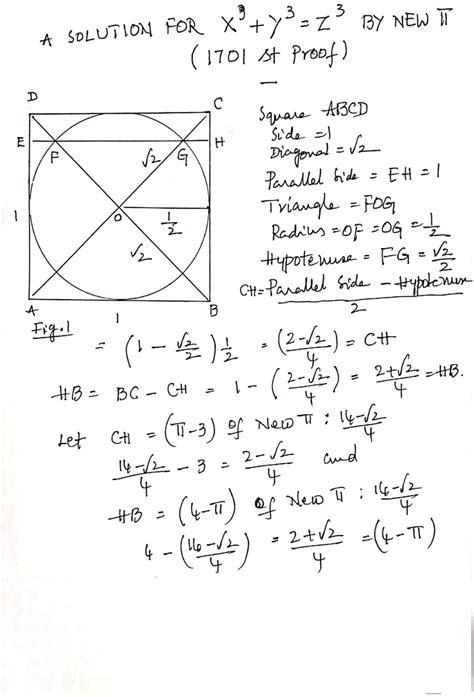 A SOLUTION FOR X³ + Y³ = Z³ BY NEW π
(1701 st Proof)
D
C
E
F
G
H
√2
O
1
1/2
√2
A
B
1
Fig.1
Square ABCD
Side = 1
Diagonal = √2
Parallel Side = EH = 1
Triangle = FOG
Radius = OF = OG = 1/2
Hypotenuse = FG = √2/2
CH = (Parallel Side - Hypotenuse)/2
= (1 - √2/2) 1/2 = (2-√2/4) = CH
HB = BC - CH = 1 - (2-√2/4) = 2+√2/4 = HB.
Let CH = (π-3) of New π : 14-√2/4
14-√2/4 - 3 = 2-√2/4 and
HB = (4-π) of New π : 14-√2/4
4 - (14-√2/4) = 2+√2/4 = (4-π)